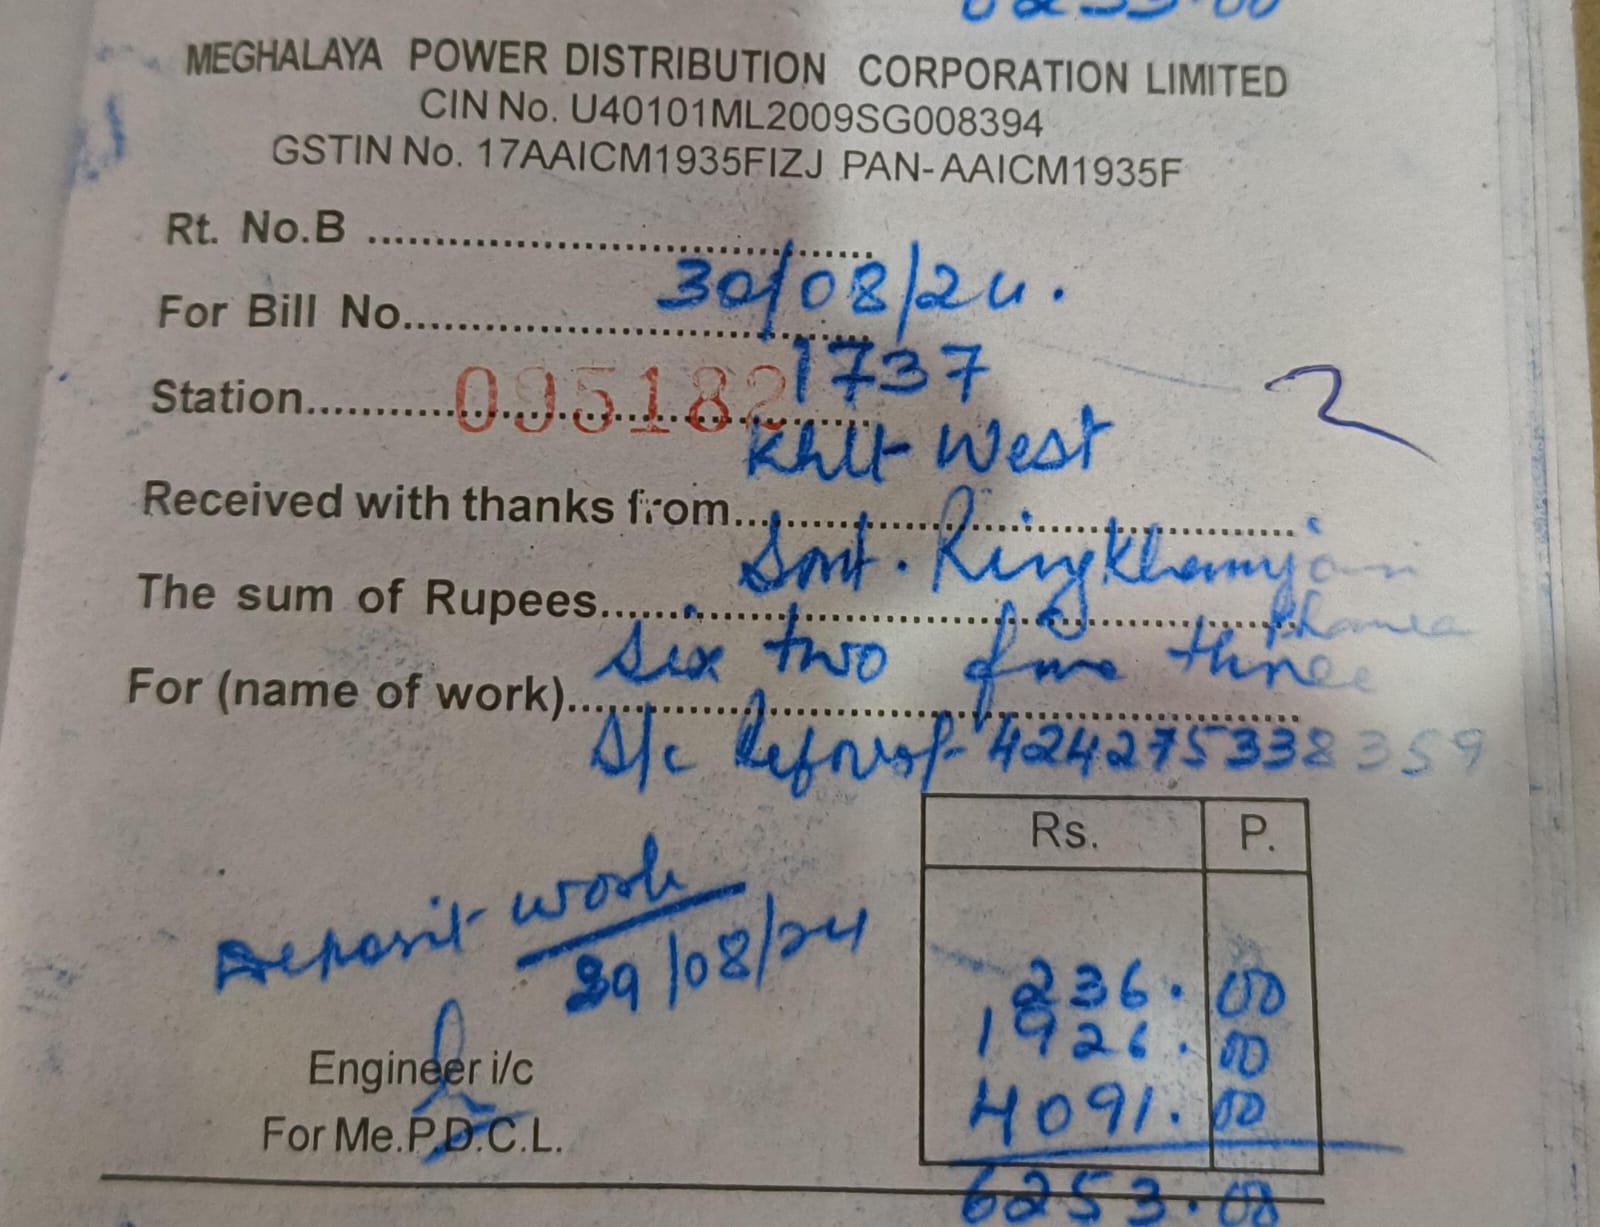 6253.00
MEGHALAYA POWER DISTRIBUTION CORPORATION LIMITED
CIN No. U40101ML2009SG008394
GSTIN No. 17AAICM1935FIZJ PAN-AAICM1935F
Rt. No.B ........................................
30/08/24.
For Bill No........................................
1737
Station........................................
095182
2
West
Received with thanks from........................................
Smt.
The sum of Rupees........................................
six two five three
For (name of work)........................................
424275338359
Rs. P.
Deposit work
29/08/24
236.00
1926.00
Engineer i/c
4091.00
For Me.P.D.C.L.
6253.00